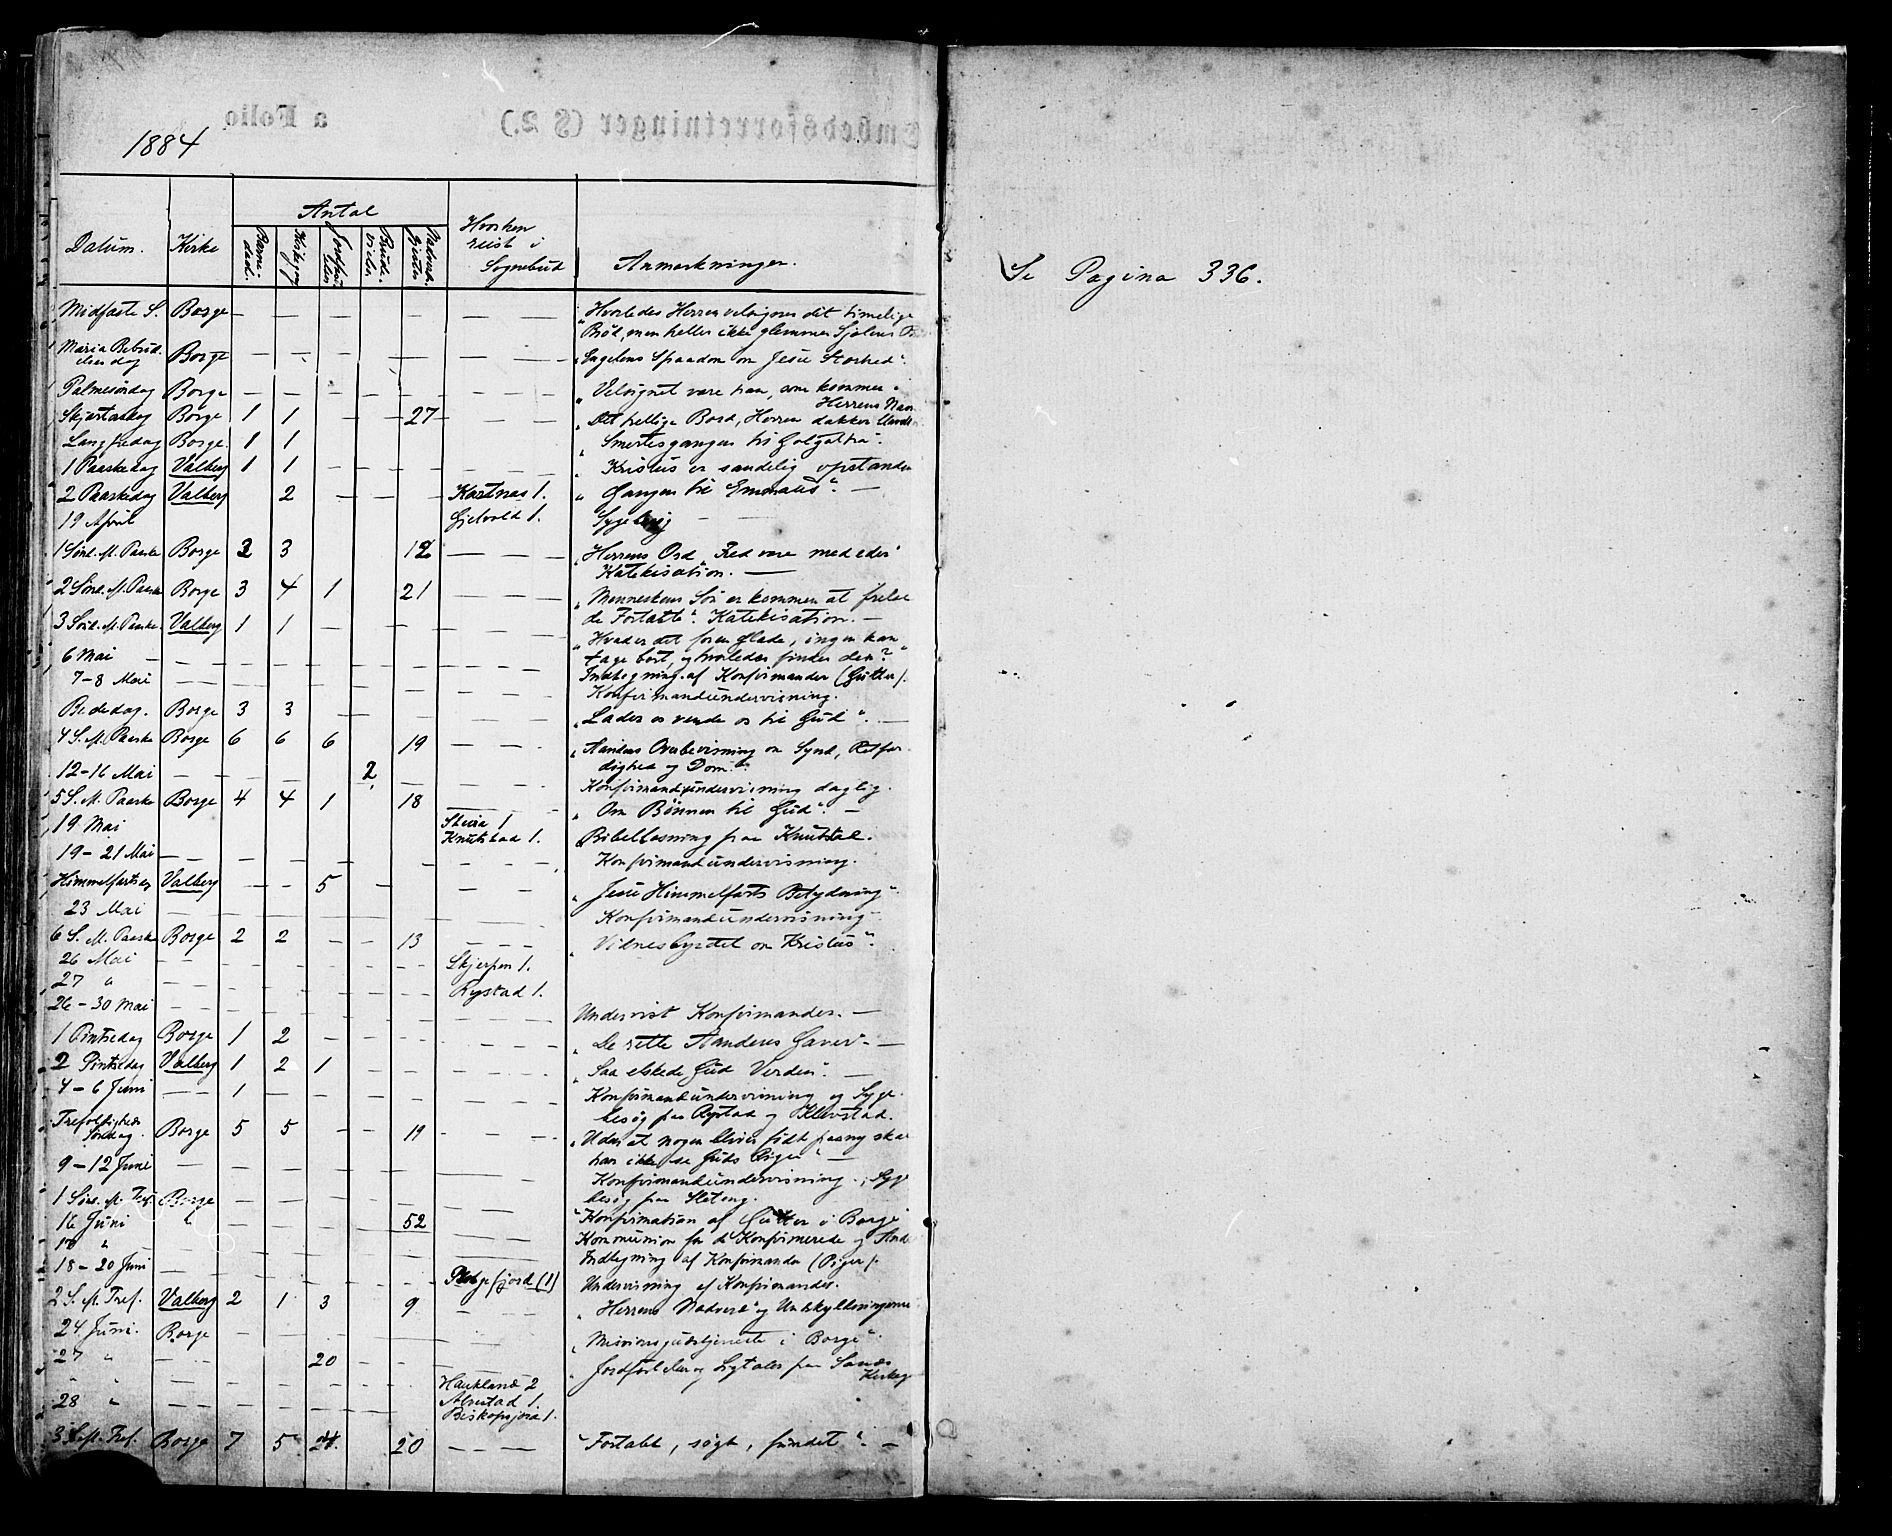 1884
Datum. Kirke Antal Hvorhen reist i Sognebud Anmærkninger.
Midfaste S. Borge — — — — — — — — „Hvorledes Herren velsigner det timelige
Brød, men heller ikke glemmer Sjælens
Maria Bebud. Borge — — — — — — — — „Engelens Spaadom om Jesu Storhed“.
elses dag
Palmesøndag Borge — — — — — — — — „Velsignet være han, som kommer i
Herrens Navn
Skjærtorsdag Borge 1 1 — — 27 — — „Det hellige Bord, Herren dækker
Langfredag Borge. 1 1 „Smertesgangen til Golgatha“.
1 Paaskedag Valberg 1 1 — — — — — — „Kristus er sandelig opstanden
2 Paaskedag Valberg 2 — — — Kartnæs 1. „Gangen til Emmaus“. —
19 April Gjelvold 1. — —
1 Sønd. M. Paaske Borge 2 3 12 — — — „Herrens Ord „Fred være med eder“
Katekisation. —
2 Sønd. M. Paaske Borge 3 4 1 21 — — — „Menneskens Søn er kommen at frelse
de Fortabte“. Katekisation. —
3 Sønd. M. Paaske. Valberg 1 1 — — — — — „Hvad er det for en Glæde, ingen kan
tage bort, og hvorledes findes den?“
6 Mai — — — — — — — — — Indtegning af Konfirmander (Gutter).
7-8 Mai — — — — — — — — Konfirmandundervisning.
Bededag. Borge 3 3 — — — — — „Lader os vende os til Gud“. —
4 S. M. Paaske Borge 6 6 6 19 — — — „Aandens Overbevisning om Synd, Retfær-
dighed og Dom“.
12-16 Mai — — — — 2 — — — Konfirmandundervisning daglig.
5 S. M. Paaske Borge 4 4 1 18 — — — „Om Bønnen til Gud“. —
19 Mai Steira 1
Knutstad 1. Bibellæsning paa Knutstad.
19-21 Mai — — — — — — — Konfirmandundervisning.
Himmelfartsdag Valberg — — 5 — — — — „Jesu Himmelfarts Betydning“
23 Mai — — — — — — — — Konfirmandundervisning
6 S. M. Paaske Borge 2 2 — — 13 — — — „Vidnesbyrdet om Kristus“.
26 Mai — — — — — — — Skjerpen 1.
27 „ — — — — — — Rystad 1.
26-30 Mai — — — — — — — — Undervist Konfirmander. —
1 Pintsedag Borge 1 2 — — — — — — „De rette Aandens Gaver“ —
2 Pintsedag Valberg 1 2 1 — — — — — „Saa elskede Gud Verden“. —
4-6 Juni — — 1 — — — — — — Konfirmandundervisning og Syge-
besøg paa Rystad og Klevstad.
Trefoldigheds
Søndag. Borge 5 5 — — 19 — — — „Uden at nogen bliver født paany kan
han ikke se Guds Rige“ —
9-12 Juni — — — — — — — Konfirmandundervisning.; Syge
besøg paa
1 Sønd. M. Tref. Borge — — — — — — „Konfirmation af Gutter i Borge“
16 Juni „ — — — — 52 — — Kommunion for de Konfirmerede og
„ — — — — — — — Indtegning af Konfirmander (Piger).
18-20 Juni — — — — — — — (1) Undervisning af Konfirmander.
2 S. M. Tref. Valberg 2 1 3 9 — — „Herrens Nadvere“ og Undskyldningerne
24 Juni. Borge — — — — — — „Missionsgudstjeneste i Borge“.
27 „ — — — 20 — — — Jordfæstelser og Ligtaler paa
Kirkeg
„ „ — — — — — — Haukland 2
28 „ — — — — — — Alvestad 1.
1.
3 S. M. Tref. Borge 7 5 20 — — — „Fortabt, søgt, fundet“. —
Se Pagina 336.